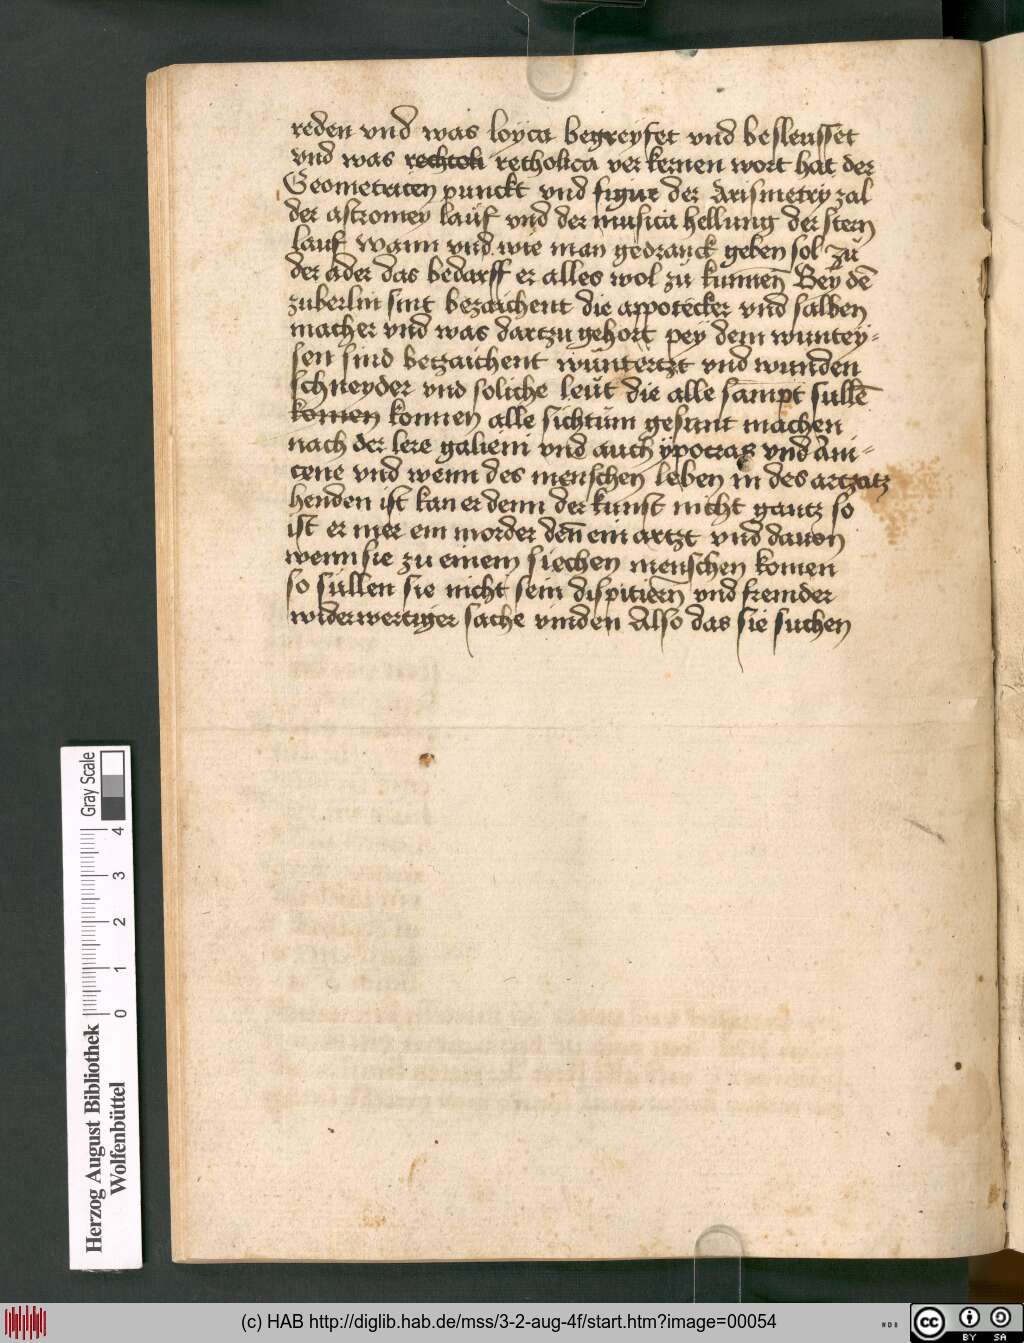 reden vnd was loyca begreyfet vnd besleusset
vnd was rechtoli retholica verkernen wort hat der
Geometricen punckt vnd figur der Arismetry zal
der astromey lauff vnd der musica hellung der stern
lauf wann vnd wie man gedranck geben sol zu
der ader das bedarff er alles wol zu kunnen Bey dē
zuberlin sint bezaichent die appotecker vnd salben
macher vnd was dartzu gehort pey dem wuntey-
sen sind betzaichent wüntertzt vnd wunden
schneyder vnd soliche leüt die alle sampt sullē
komen konnen alle sichtum gesunt machen
nach der lere galieni vnd auch ypocras vnd Aui-
cene vnd wenn des menschen leben in des artzatz
henden ist kan er denn der kunst nicht gantz so
ist er mer ein morder deñ ein artzt vnd dauon
wenn sie zu einem siechen menschen komen
so süllen sie nicht sein dispitiern vnd fremder
widerwertiger sache vinden Also das sie suchen
Gray Scale
4
3
2
1
0
Herzog August Bibliothek
Wolfenbüttel
(c) HAB http://diglib.hab.de/mss/3-2-aug-4f/start.htm?image=00054
WDB
cc
BY SA